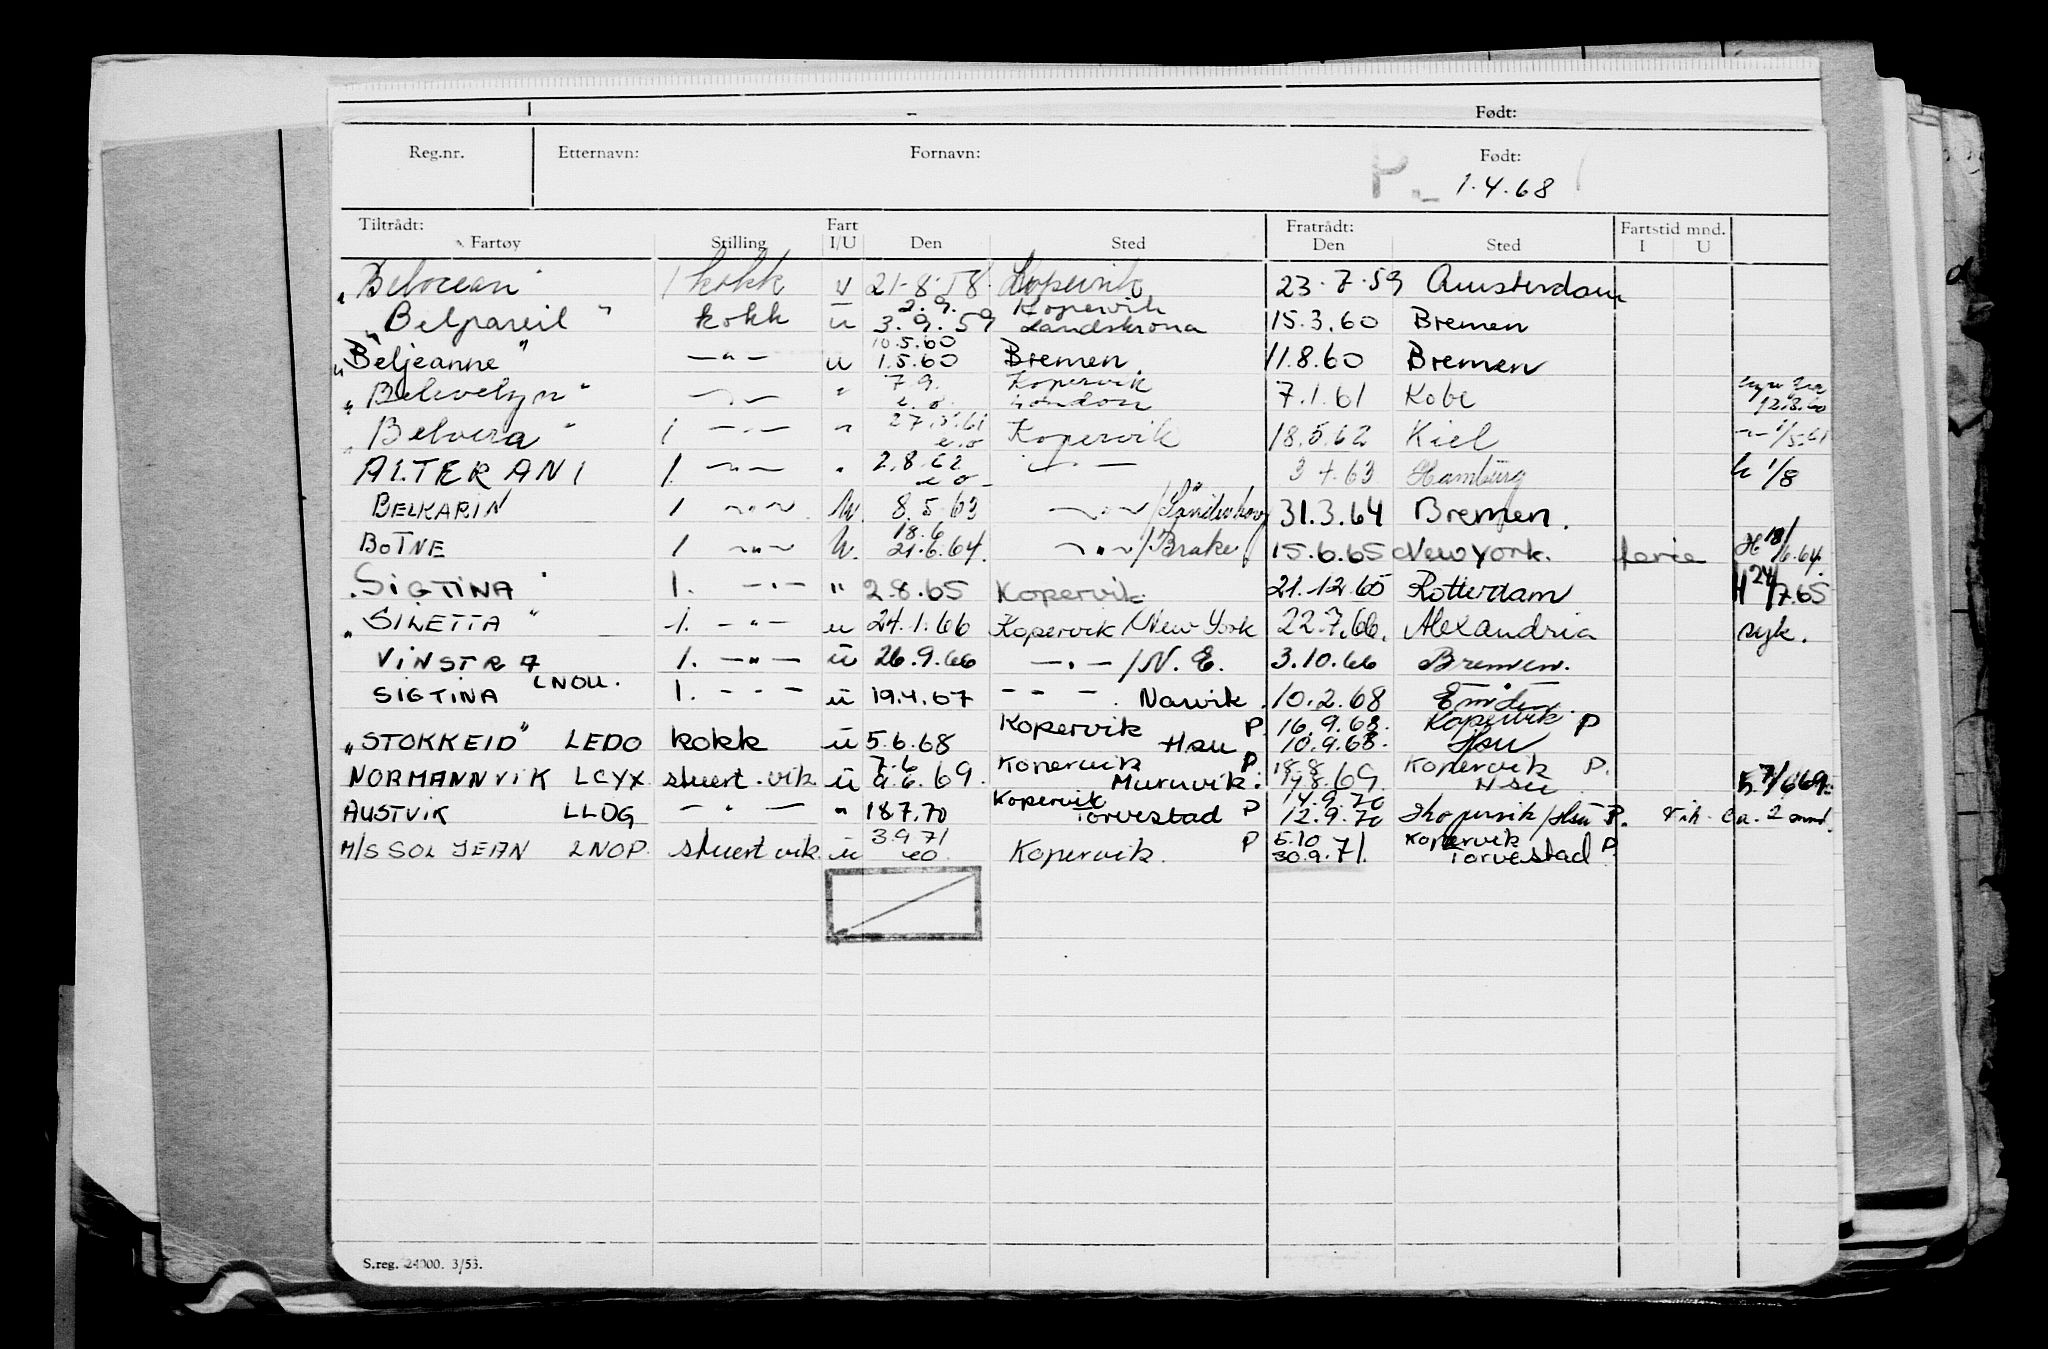 Født:
Reg.nr. Etternavn: Fornavn: Født:
P. 1.4.68
Tiltrådt: Fart Fratrådt: Fartstid mnd.
Fartøy Stilling I/U Den Sted Den Sted I U
"Belocean" 1 kokk u 21-8-58. Kopervik 23.7.59 Amsterdam
2.9. Kopervik
"Belpareil" kokk u 3.9.59 Landskrona 15.3.60 Bremen
10.5.60
"Beljeanne" —"— u 1.5.60 Bremen. 11.8.60 Bremen
7.9. Kopervik
"Belevelyn" —"— " e.o. London 7.1.61 Kobe 12.8.60
27.5.61
"Belvera" 1 —"— " e.o Kopervik 18.5.62 Kiel
2.8.62
ALTERANI 1. —"— " e.o —"— 3.4.63 Hamburg h 1/8
BELKARIN 1 —"— u. 8.5.63 —"—/ 31.3.64 Bremen.
18.6
BOTNE 1 —"— u. 21.6.64. —"—/Brake 15.6.65 New York. ferie H 18/6.64.
"SIGTINA" 1. —"— " 2.8.65 Kopervik. 21.12.65 Rotterdam H 24/7.65
"SILETTA" 1. —"— u 24.1.66 Kopervik/New York 22.7.66. Alexandria syk.
VINSTRA 1. —"— u 26.9.66 —"—/N.E. 3.10.66 Bremen.
SIGTINA LNOU. 1. - - - u 19.4.67 - - - Narvik. 10.2.68 Emden.
Kopervik P. 16.9.68. Kopervik P
"STOKKEID" LEDO kokk u 5.6.68 Hsu 10.9.68. Hsu
7.6 Kopervik P 18.8 Kopervik P.
NORMANNVIK LCYX stuert.vik. u 9.6.69. Muruvik. 14.8.69. Hsu
Kopervik 14.9.70
AUSTVIK LLDG —"— " 18.7.70 Torvestad P 12.9.70 Kopervik/Hsu P. vik. ca. 2 mnd.
3.9.71 5.10 Kopervik P
M/S SOL JEAN LNOP. stuert vik. u eo Kopervik. P 30.9.71. Torvestad
S.reg. 24000. 3/53.